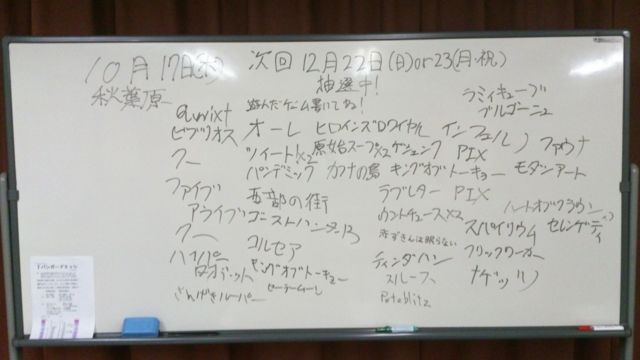 10月17日(木) 次回 12月22日(日)or23(月・祝)
秋葉原 抽選中!
遊んだゲーム書いてね!
qwixt
ビブリオス
クー
ファイブ
アライブ
クー
ハイパー
ロボット
ざんげきルーパー
オーレ
ツイート!x2
パンデミック
西部の街
ゴーストハンター13
コルセア
キングオブトーキョー
セーラームーン
ヒロインズロワイヤル
原始スープx2
カナの島
インフェルノ
ファウナ
PIX
キングオブトーキョー
モダンアート
ラブレター
PIX
カウントチュースx2
赤ずきんは眠らない
ティンダハン
スルース
Potablitz
ラミィキューブ
ブルゴーニュ
ハートオブクラウン
スパイリウム
セレンゲティ
フリックワーカー
ナゲッツ